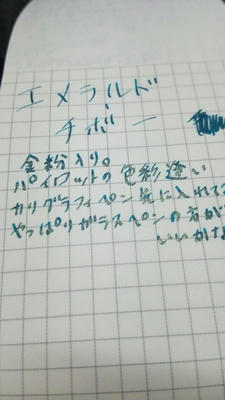 エメラルド
チボー
金粉入り。
パイロットの色彩逢い
カリグラフィペン先に入れてる
やっぱりガラスペンの方が
いいかな